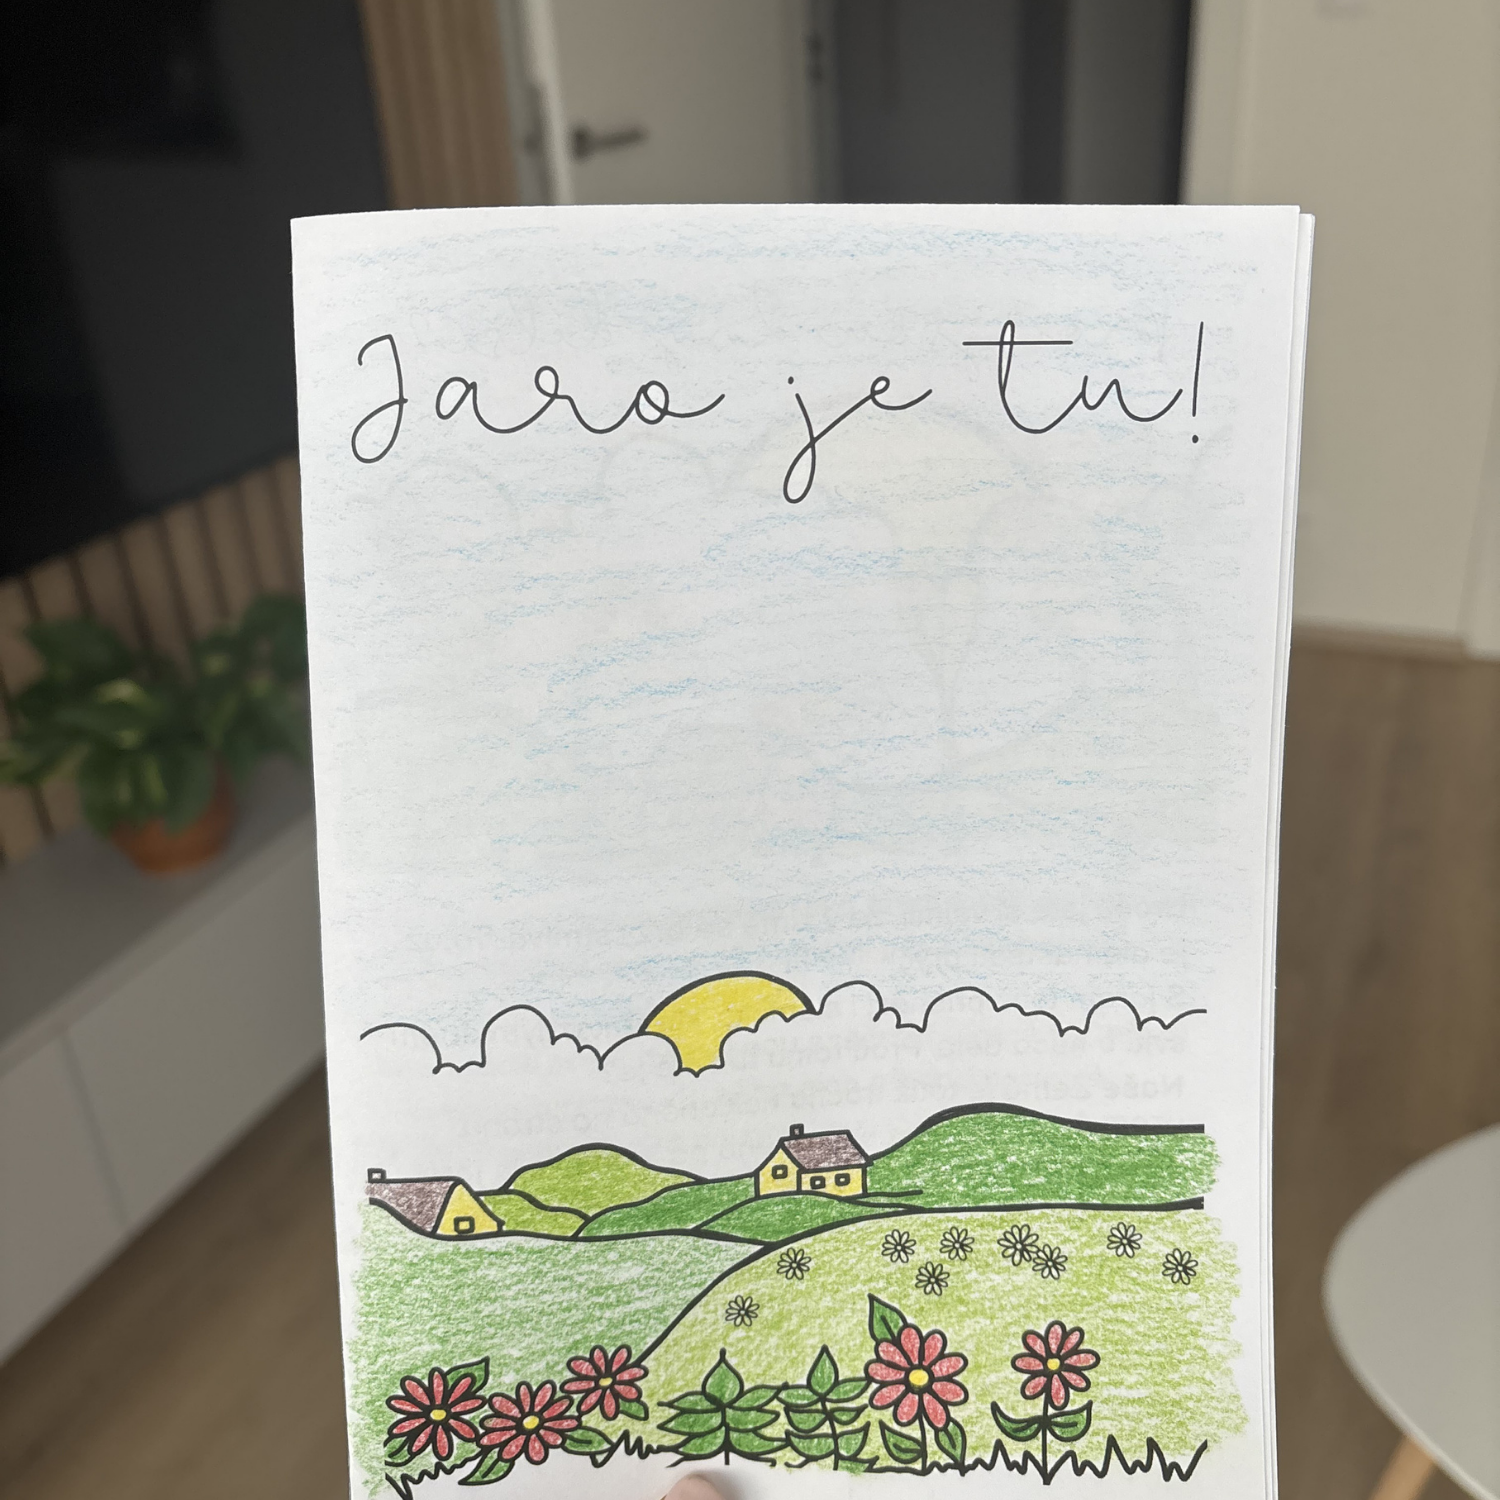 Jaro je tu!